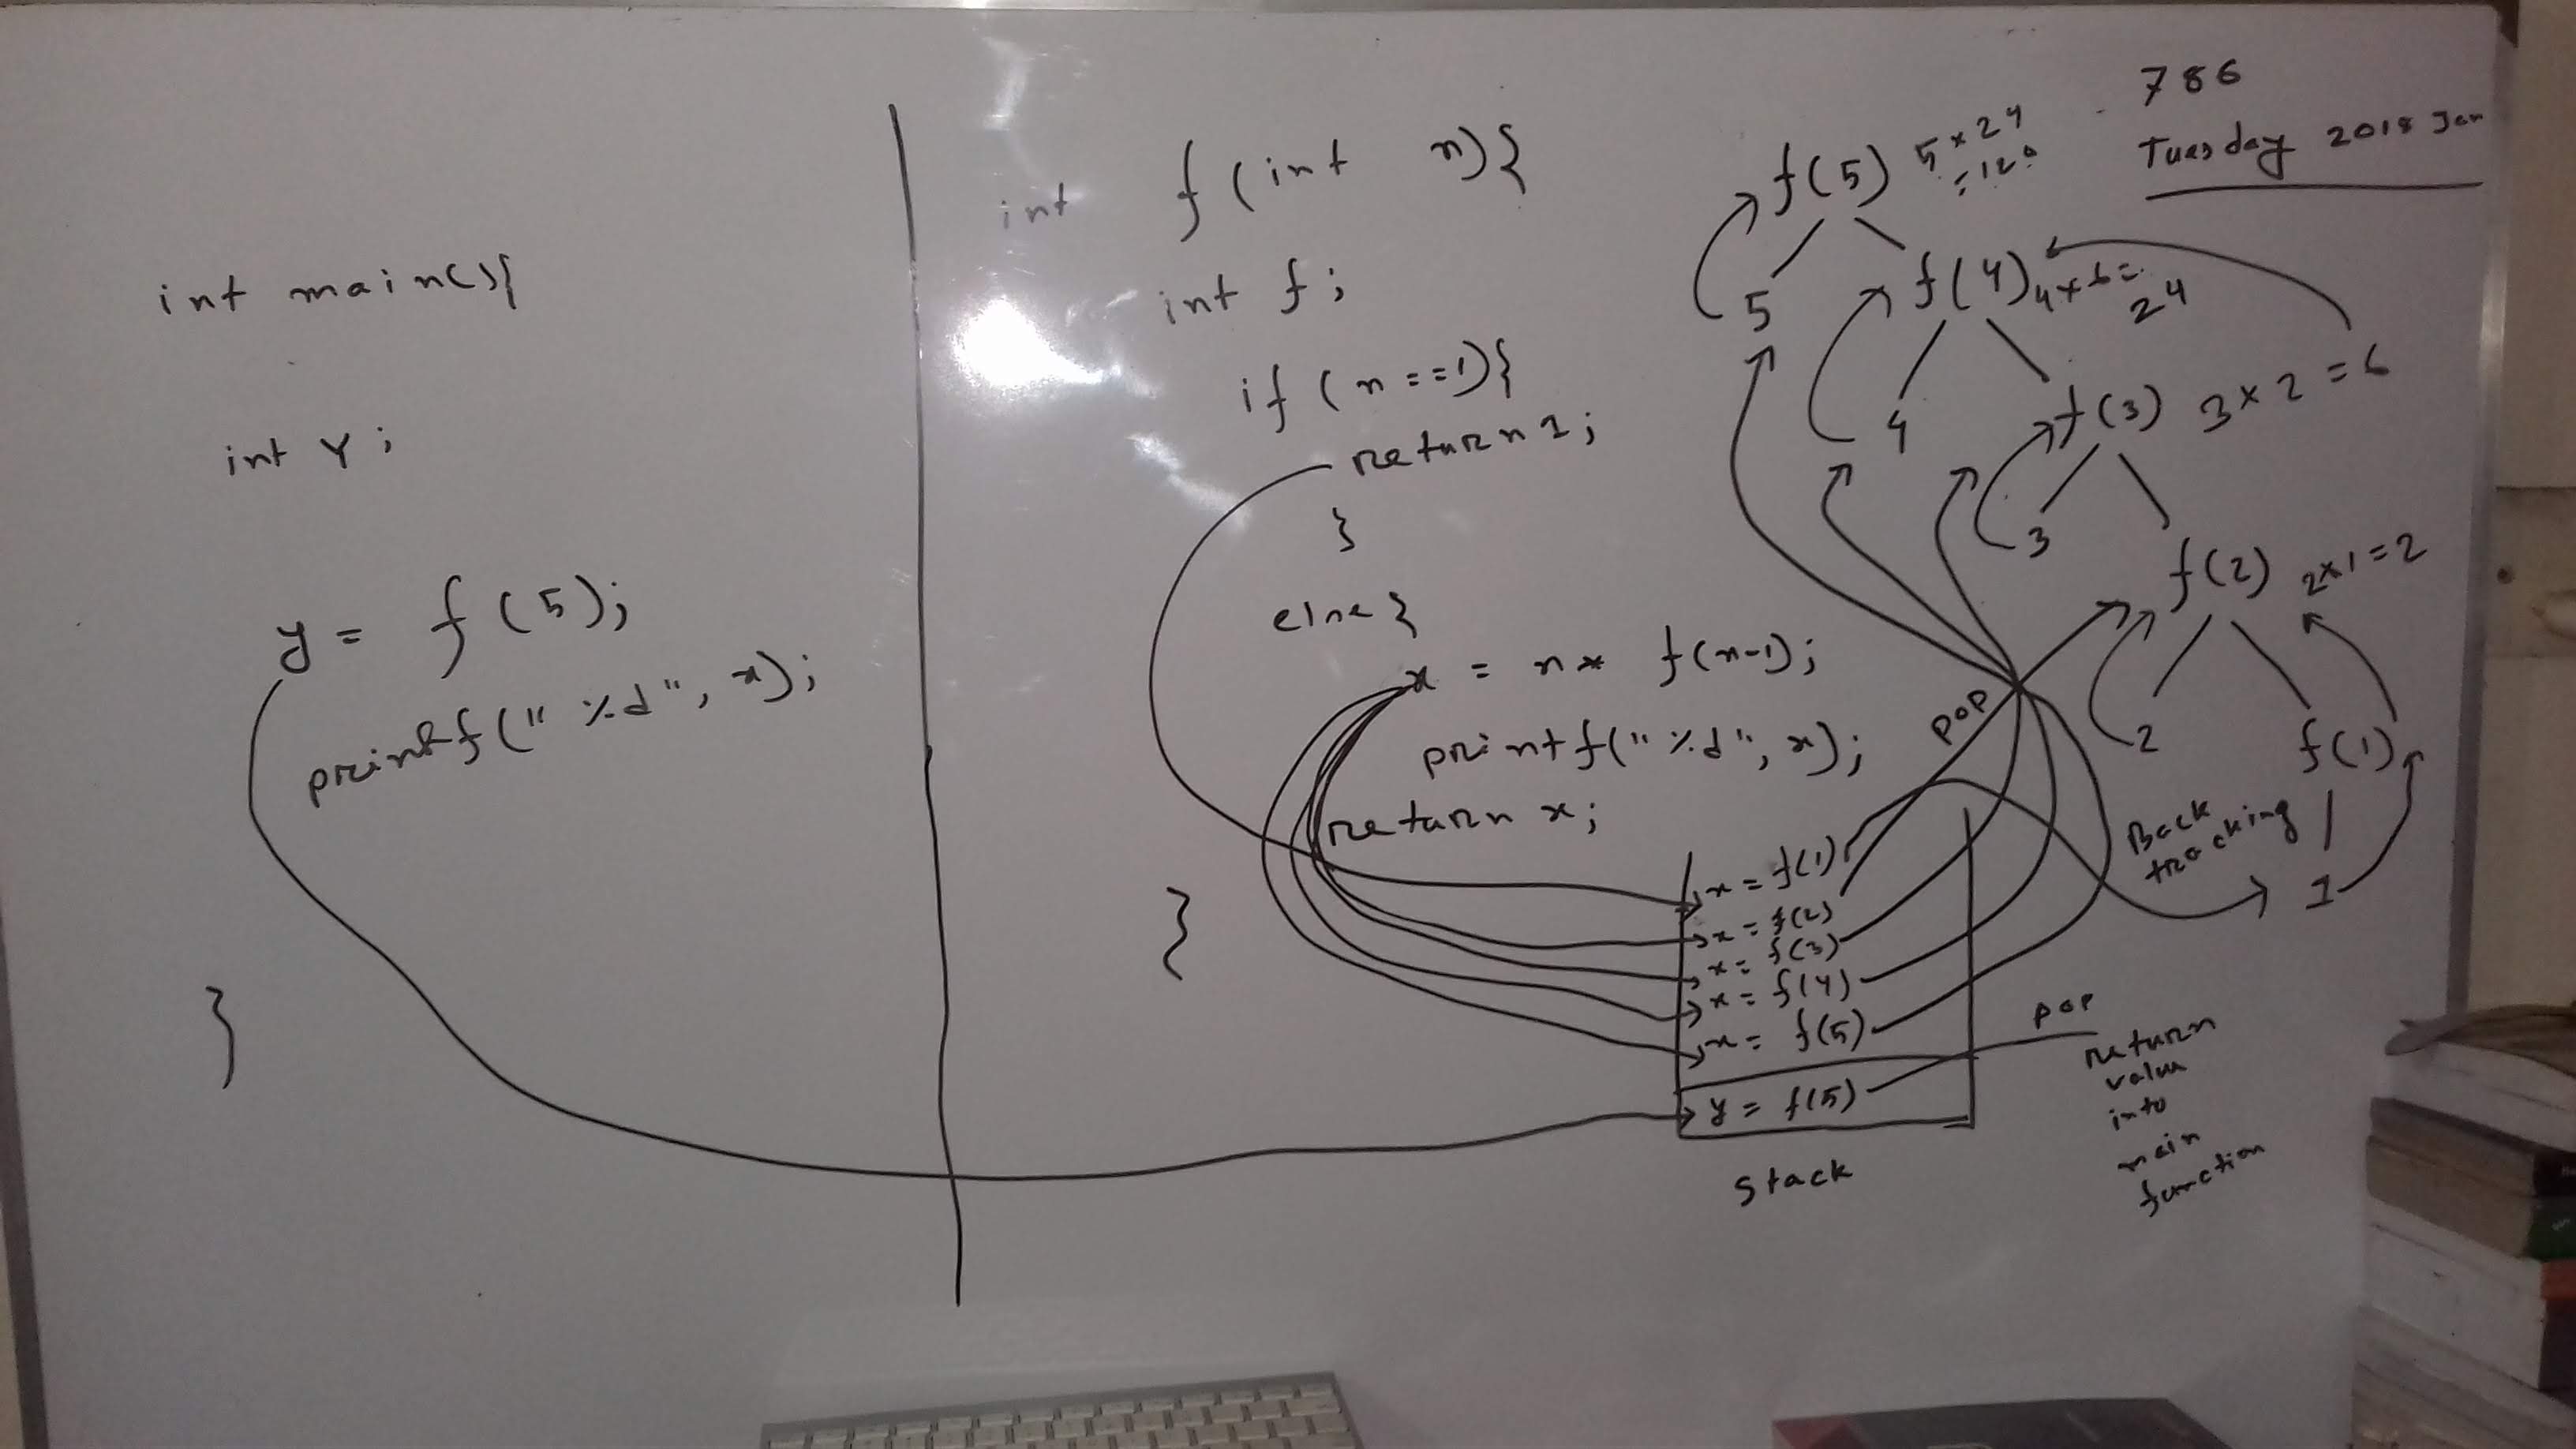 int main(){
int Y;
y = f(5);
printf("%d", x);
}
int f(int n){
int f;
if (n==1){
return 1;
}
else{
x = n* f(n-1);
printf("%d", x);
return x;
}
786
Tuesday 2018 Jan
f(5) 5×24
=120
5 f(4) 4×6=
24
4 f(3) 3×2=6
3 f(2) 2×1=2
2 f(1)
1
Back
tracking
pop
x = f(1)
x = f(2)
x = f(3)
x = f(4)
x = f(5)
y = f(5)
Stack
pop
return
value
into
main
function